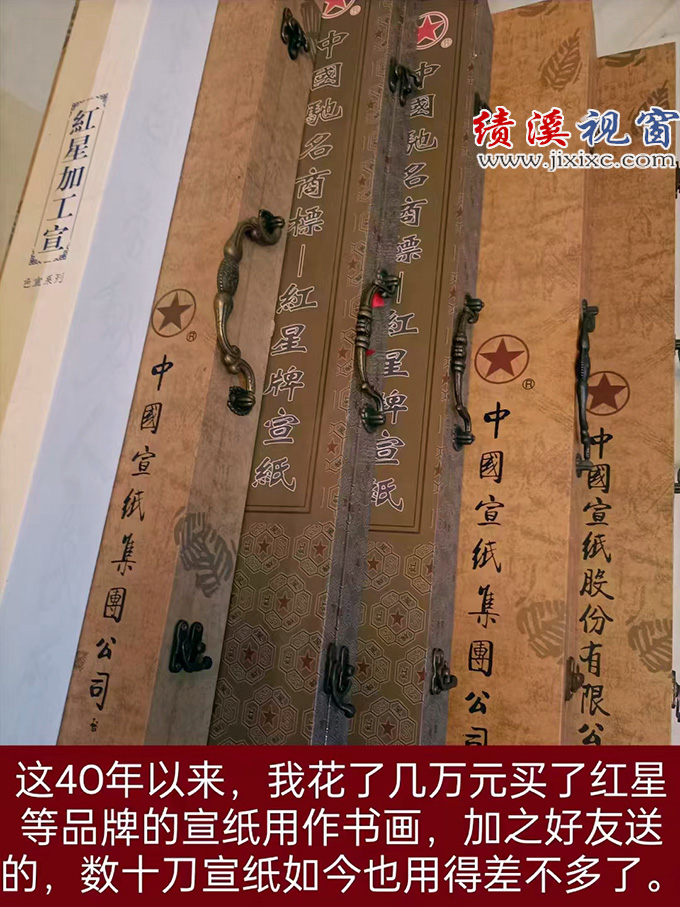 紅星加工宣
色宣系列
®
中國宣紙集團公司
®
中國馳名商標—紅星牌宣紙
®
中國馳名商標—紅星牌宣紙
®
中國宣紙集團公司
中國宣紙股份有限公
绩溪视窗
www.jixixc.com
这40年以来，我花了几万元买了红星
等品牌的宣纸用作书画，加之好友送
的，数十刀宣纸如今也用得差不多了。